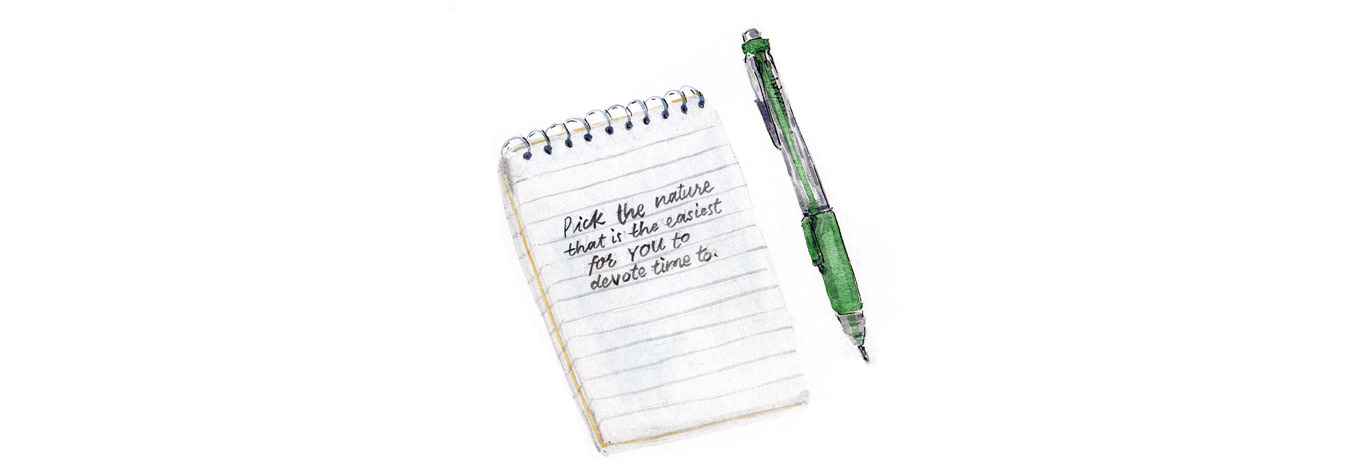 Pick the nature
that is the easiest
for YOU to
devote time to.